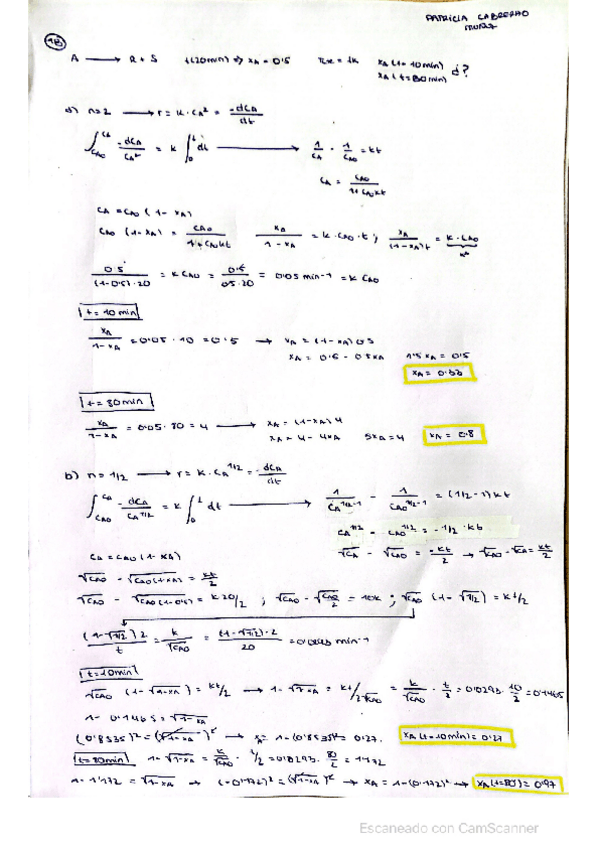 PATRICIA CABRERO
MUÑOZ
1B
A → R + S t(20min) => xA = 0'5 xA (t = 10min)
xA (t = 80min) d?
a) n=2 → r = K · CA² = -dCA/dt
∫CAO^CA -dCA/CA² = K ∫0^t dt → 1/CA - 1/CAO = kt
CA = CAO/1+CAOkt
CA = CAO (1 - xA)
CAO (1-xA) = CAO/1+CAOkt xA/1-xA = K · CAO · t ; xA/(1-xA)t = K · CAO
0'5/(1-0'5)·20 = K CAO = 0'5/0'5·20 = 0'05 min-1 = K CAO
t = 10 min
xA/1-xA = 0'05 · 10 = 0'5 → xA = (1-xA) 0'5
xA = 0'5 - 0'5xA 1'5 xA = 0'5
xA = 0'33
t = 80 min
xA/1-xA = 0'05 · 80 = 4 → xA = (1-xA) 4
xA = 4 - 4xA 5xA = 4 xA = 0'8
b) n = 1/2 → r = K · CA^1/2 = -dCA/dt
∫CAO^CA -dCA/CA^1/2 = K ∫0^t dt → 1/CA^1/2-1 - 1/CAO^1/2-1 = (1/2-1) kt
CA^1/2 - CAO^1/2 = -1/2 · kt
CA = CAO (1-xA) √CA - √CAO = -kt/2 → √CAO - √CA = kt/2
√CAO - √CAO(1-xA) = kt/2
√CAO - √CAO(1-0'5) = K 20/2 ; √CAO - √CAO/2 = 10K ; √CAO (1-√1/2) = Kt/2
(1-√1/2) 2/t = k/√CAO = (1-√1/2)·2/20 = 0'0293 min-1
t = 10 min
√CAO (1-√1-xA) = Kt/2 → 1-√1-xA = Kt/2√CAO = k/√CAO · t/2 = 0'0293 · 10/2 = 0'1465
1 - 0'1465 = √1-xA
(0'8535)² = (√1-xA)² → xA = 1-(0'8535)² = 0'27. xA (t=10min) = 0'27
t=80min 1-√1-xA = k/√CAO · t/2 = 0'0293 · 80/2 = 1'172
1-1'172 = √1-xA → (-0'172)² = (√1-xA)² → xA = 1-(0'172)² → xA (t=80') = 0'97
Escaneado con CamScanner